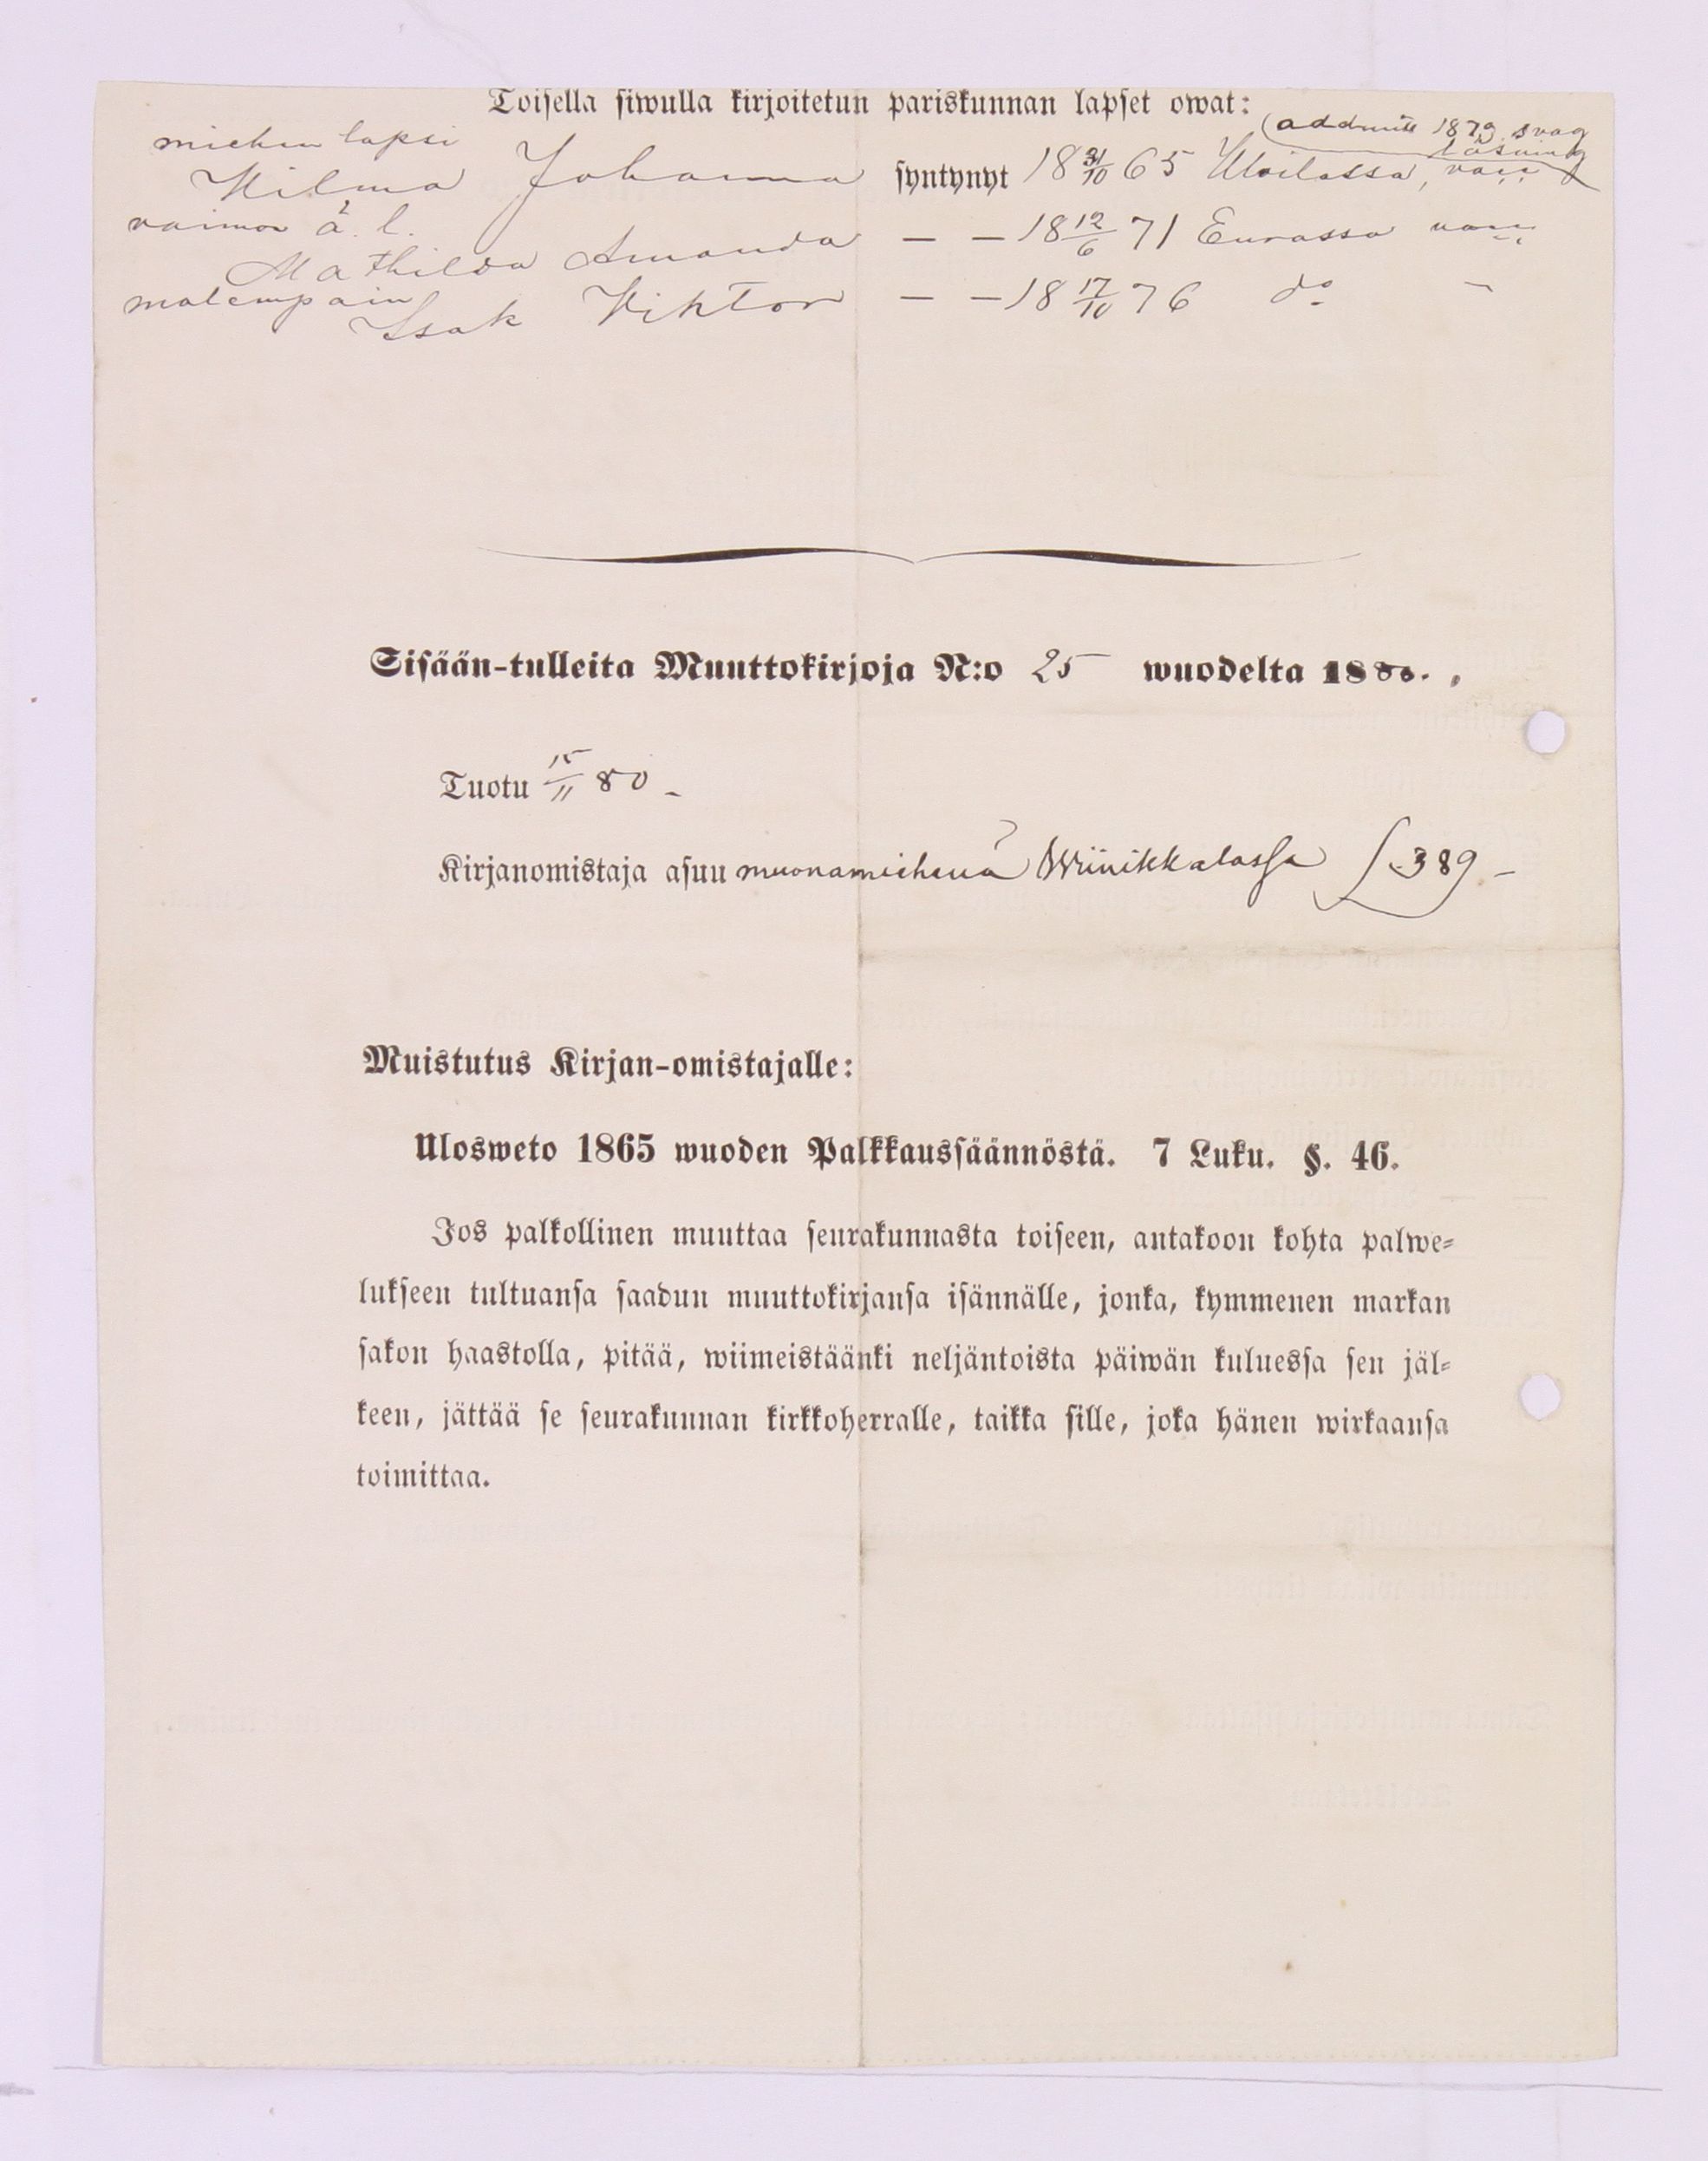 Toisella siwulla kirjoitetun pariskunnan lapset owat:
(addmitt 1879 svag
läsning
miehen lapsi
Wilma Johanna syntynyt 18 31/10 65 Ulvilassa, vacc
vaimon ä. l.
Mathilda Amanda — — 18 12/6 71 Eurassa vacc
molempain
Isak Viktor — — 18 17/10 76 do "
Sisään-tulleita Muuttokirjoja N:o 25 wuodelta 1880.
Tuotu 15/11 80 -
Kirjanomistaja asuu muonamiehenä Wiinikkalassa 389 -
Muistutus Kirjan-omistajalle:
Ulosweto 1865 wuoden Palkkaussäännöstä. 7 Luku. §. 46.
Jos palkollinen muuttaa seurakunnasta toiseen, antakoon kohta palwe-
lukseen tultuansa saadun muuttokirjansa isännälle, jonka, kymmenen markan
sakon haastolla, pitää, wiimeistäänki neljäntoista päiwän kuluessa sen jäl-
keen, jättää se seurakunnan kirkkoherralle, taikka sille, joka hänen wirkaansa
toimittaa.